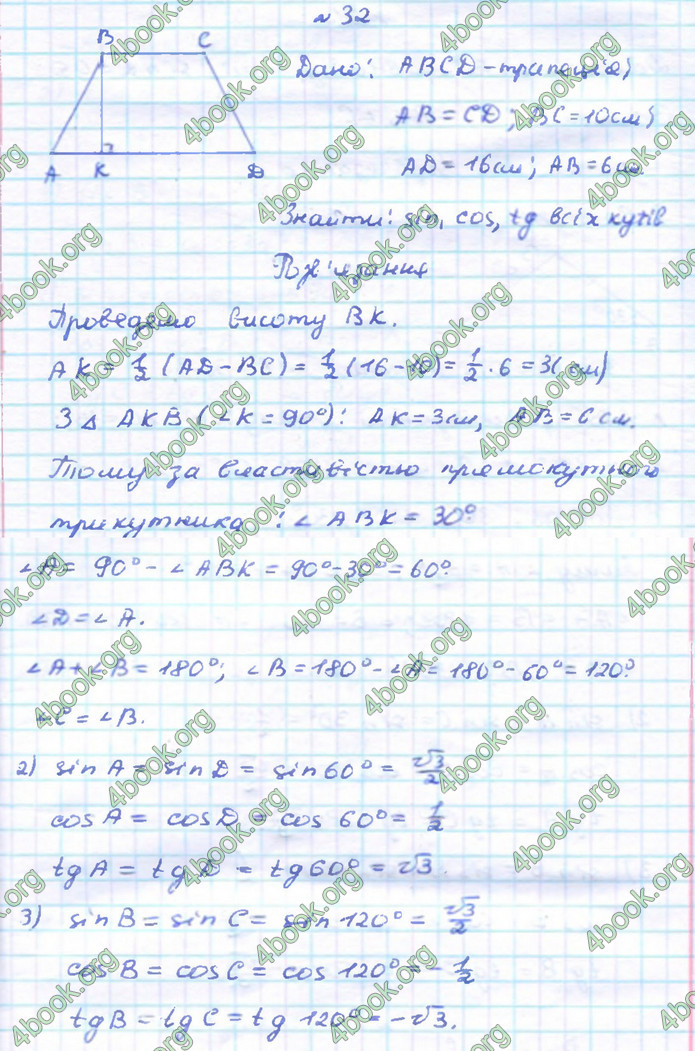 № 32
B C
A K D
Дано: ABCD - трапеція;
AB = CD; BC = 10 см;
AD = 16 см; AB = 6 см
Знайти: sin, cos, tg всіх кутів
Розв'язання
Проведемо висоту BK.
AK = 1/2 (AD - BC) = 1/2 (16 - 10) = 1/2 · 6 = 3 (см)
З △ AKB (∠K = 90°): AK = 3 см, AB = 6 см.
Тому за властивістю прямокутного
трикутника : ∠ ABK = 30°.
∠A = 90° - ∠ ABK = 90° - 30° = 60°.
∠D = ∠ A.
∠A + ∠B = 180°; ∠B = 180° - ∠A = 180° - 60° = 120°.
∠C = ∠B.
2) sin A = sin D = sin 60° = √3/2
cos A = cos D = cos 60° = 1/2
tg A = tg D = tg 60° = √3
3) sin B = sin C = sin 120° = √3/2
cos B = cos C = cos 120° = - 1/2
tg B = tg C = tg 120° = - √3.
4book.org